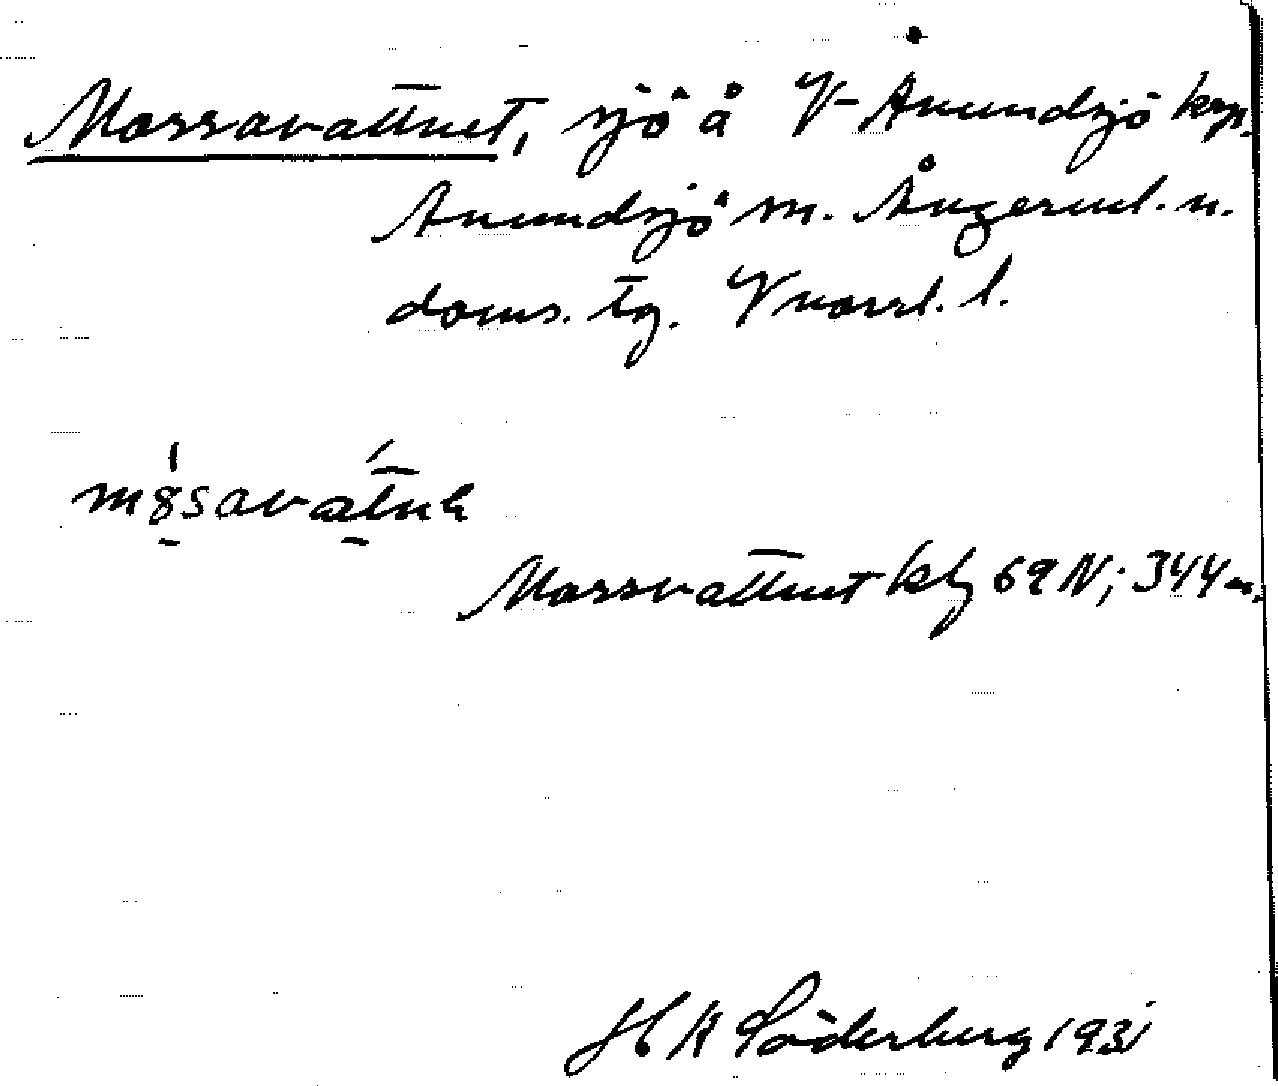 Mossavattnet, sjö å V-Anundsjö krp.
Anundsjö sn. Ångerml. n.
doms. tg. Vnorrl. l.
Mossvattnet kbl 69 N; 344 m.
H K Söderberg 1931